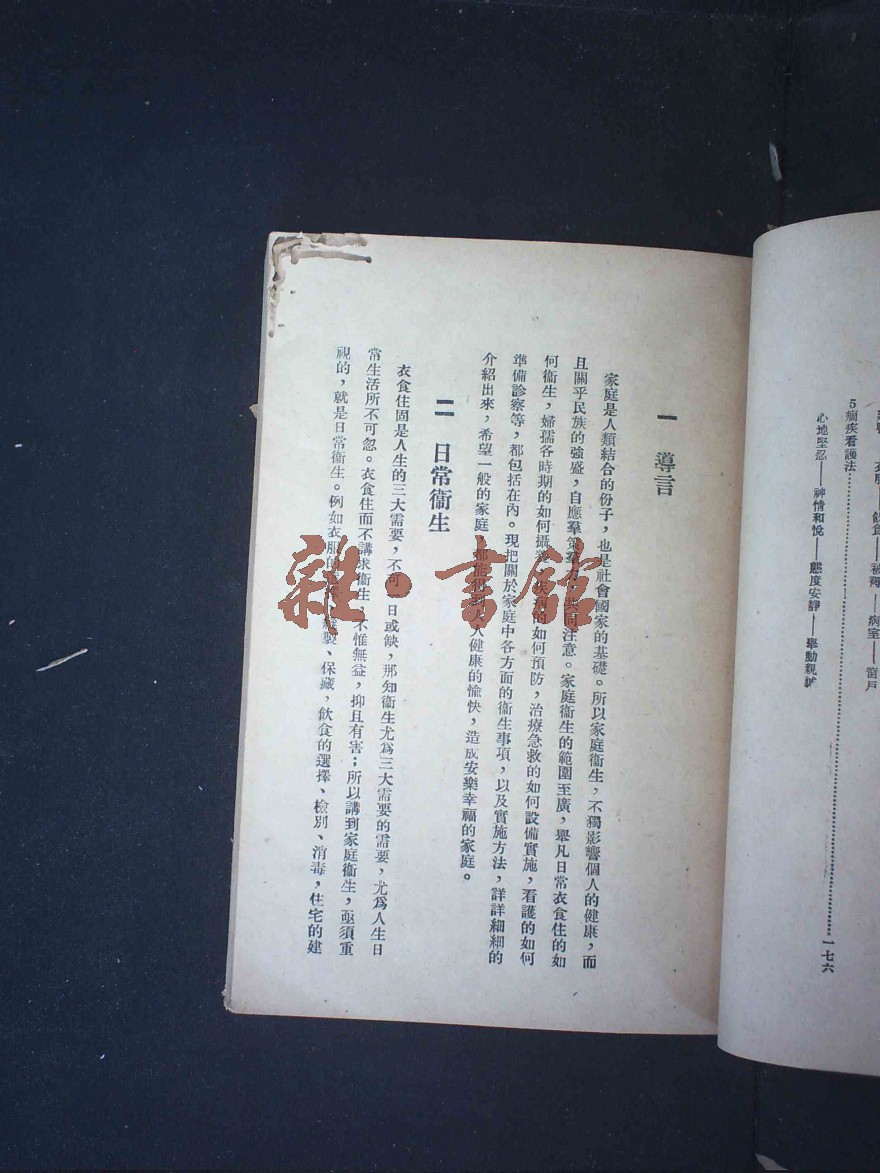 5 痼疾看護法……一七六
心地堅忍——神情和悅——態度安靜——舉動親誠
一 導言
家庭是人類結合的份子，也是社會國家的基礎。所以家庭衞生，不獨影響個人的健康，而
且關乎民族的強盛，自應羣策羣力，共同注意。家庭衞生的範圍至廣，舉凡日常衣食住的如
何衞生，婦孺各時期的如何攝養，疾病的如何預防，治療急救的如何設備實施，看護的如何
準備診察等，都包括在內。現把關於家庭中各方面的衞生事項，以及實施方法，詳詳細細的
介紹出來，希望一般的家庭，都能得到大人健康的愉快，造成安樂幸福的家庭。
二 日常衞生
衣食住固是人生的三大需要，不可一日或缺，那知衞生尤爲三大需要的需要，尤爲人生日
常生活所不可忽。衣食住而不講求衞生，不惟無益，抑且有害；所以講到家庭衞生，亟須重
視的，就是日常衞生。例如衣服的製、保藏，飲食的選擇、檢別、消毒，住宅的建
雜·書館